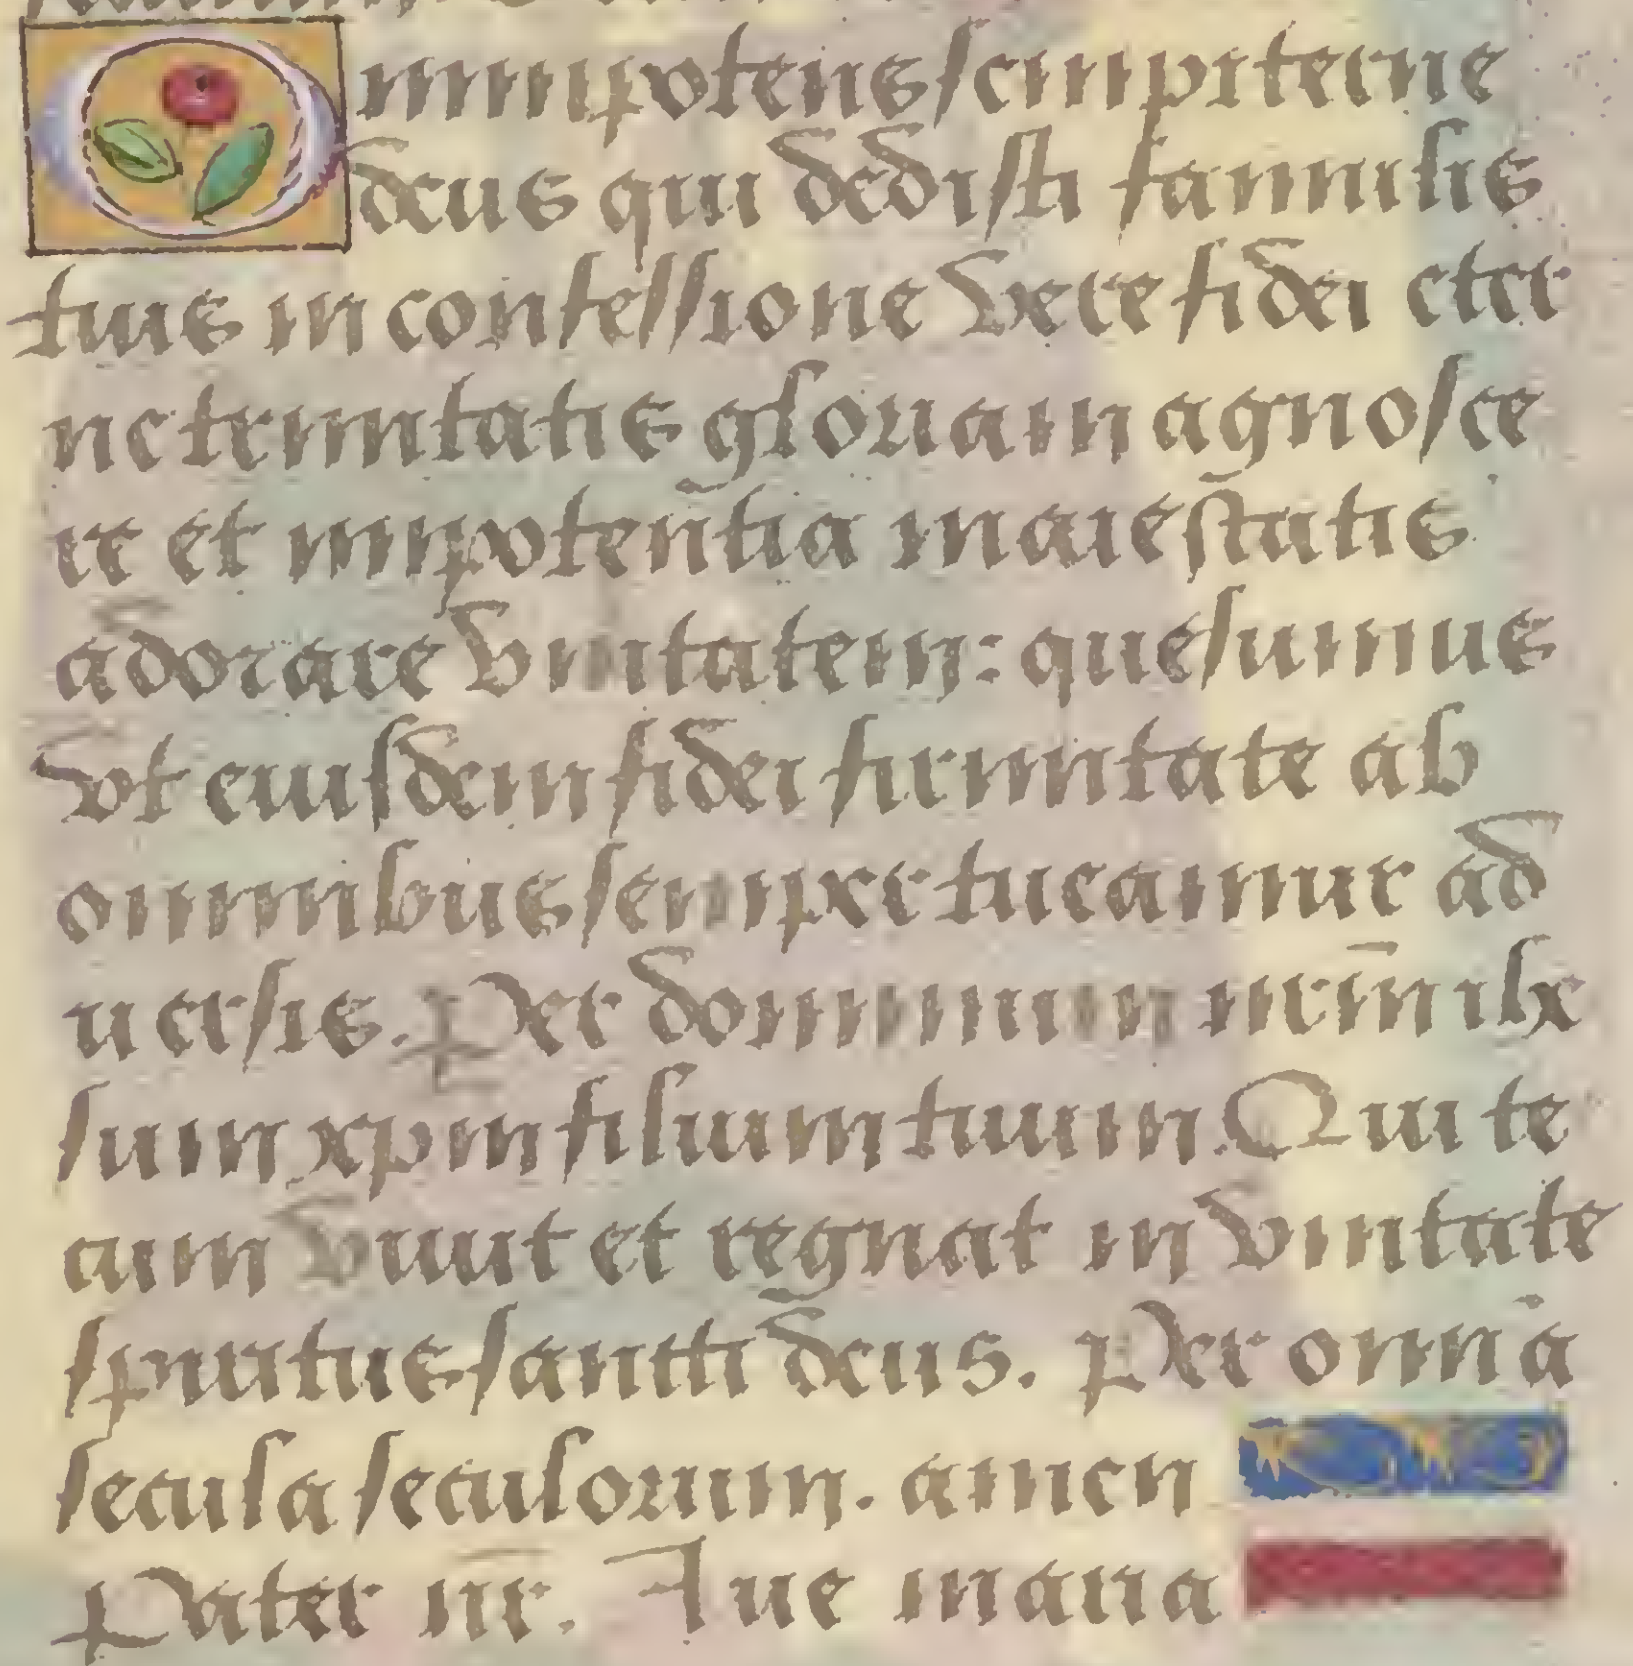 Omnipotens sempiterne
deus qui dedisti famulis
tuis in confessione vere fidei eter
ne trinitatis gloriam agnosce
re et in potentia maiestatis
adorare vnitatem: quesumus
vt eiusdem fidei firmitate ab
omnibus semper tueamur ad
uersis. Per dominum nrm̄ ihe
sum xpm filium tuum. Qui te
cum viuit et regnat in vnitate
spiritus sancti deus. Per omnā
secula seculorum. amen
Pater nr̄. Aue maria